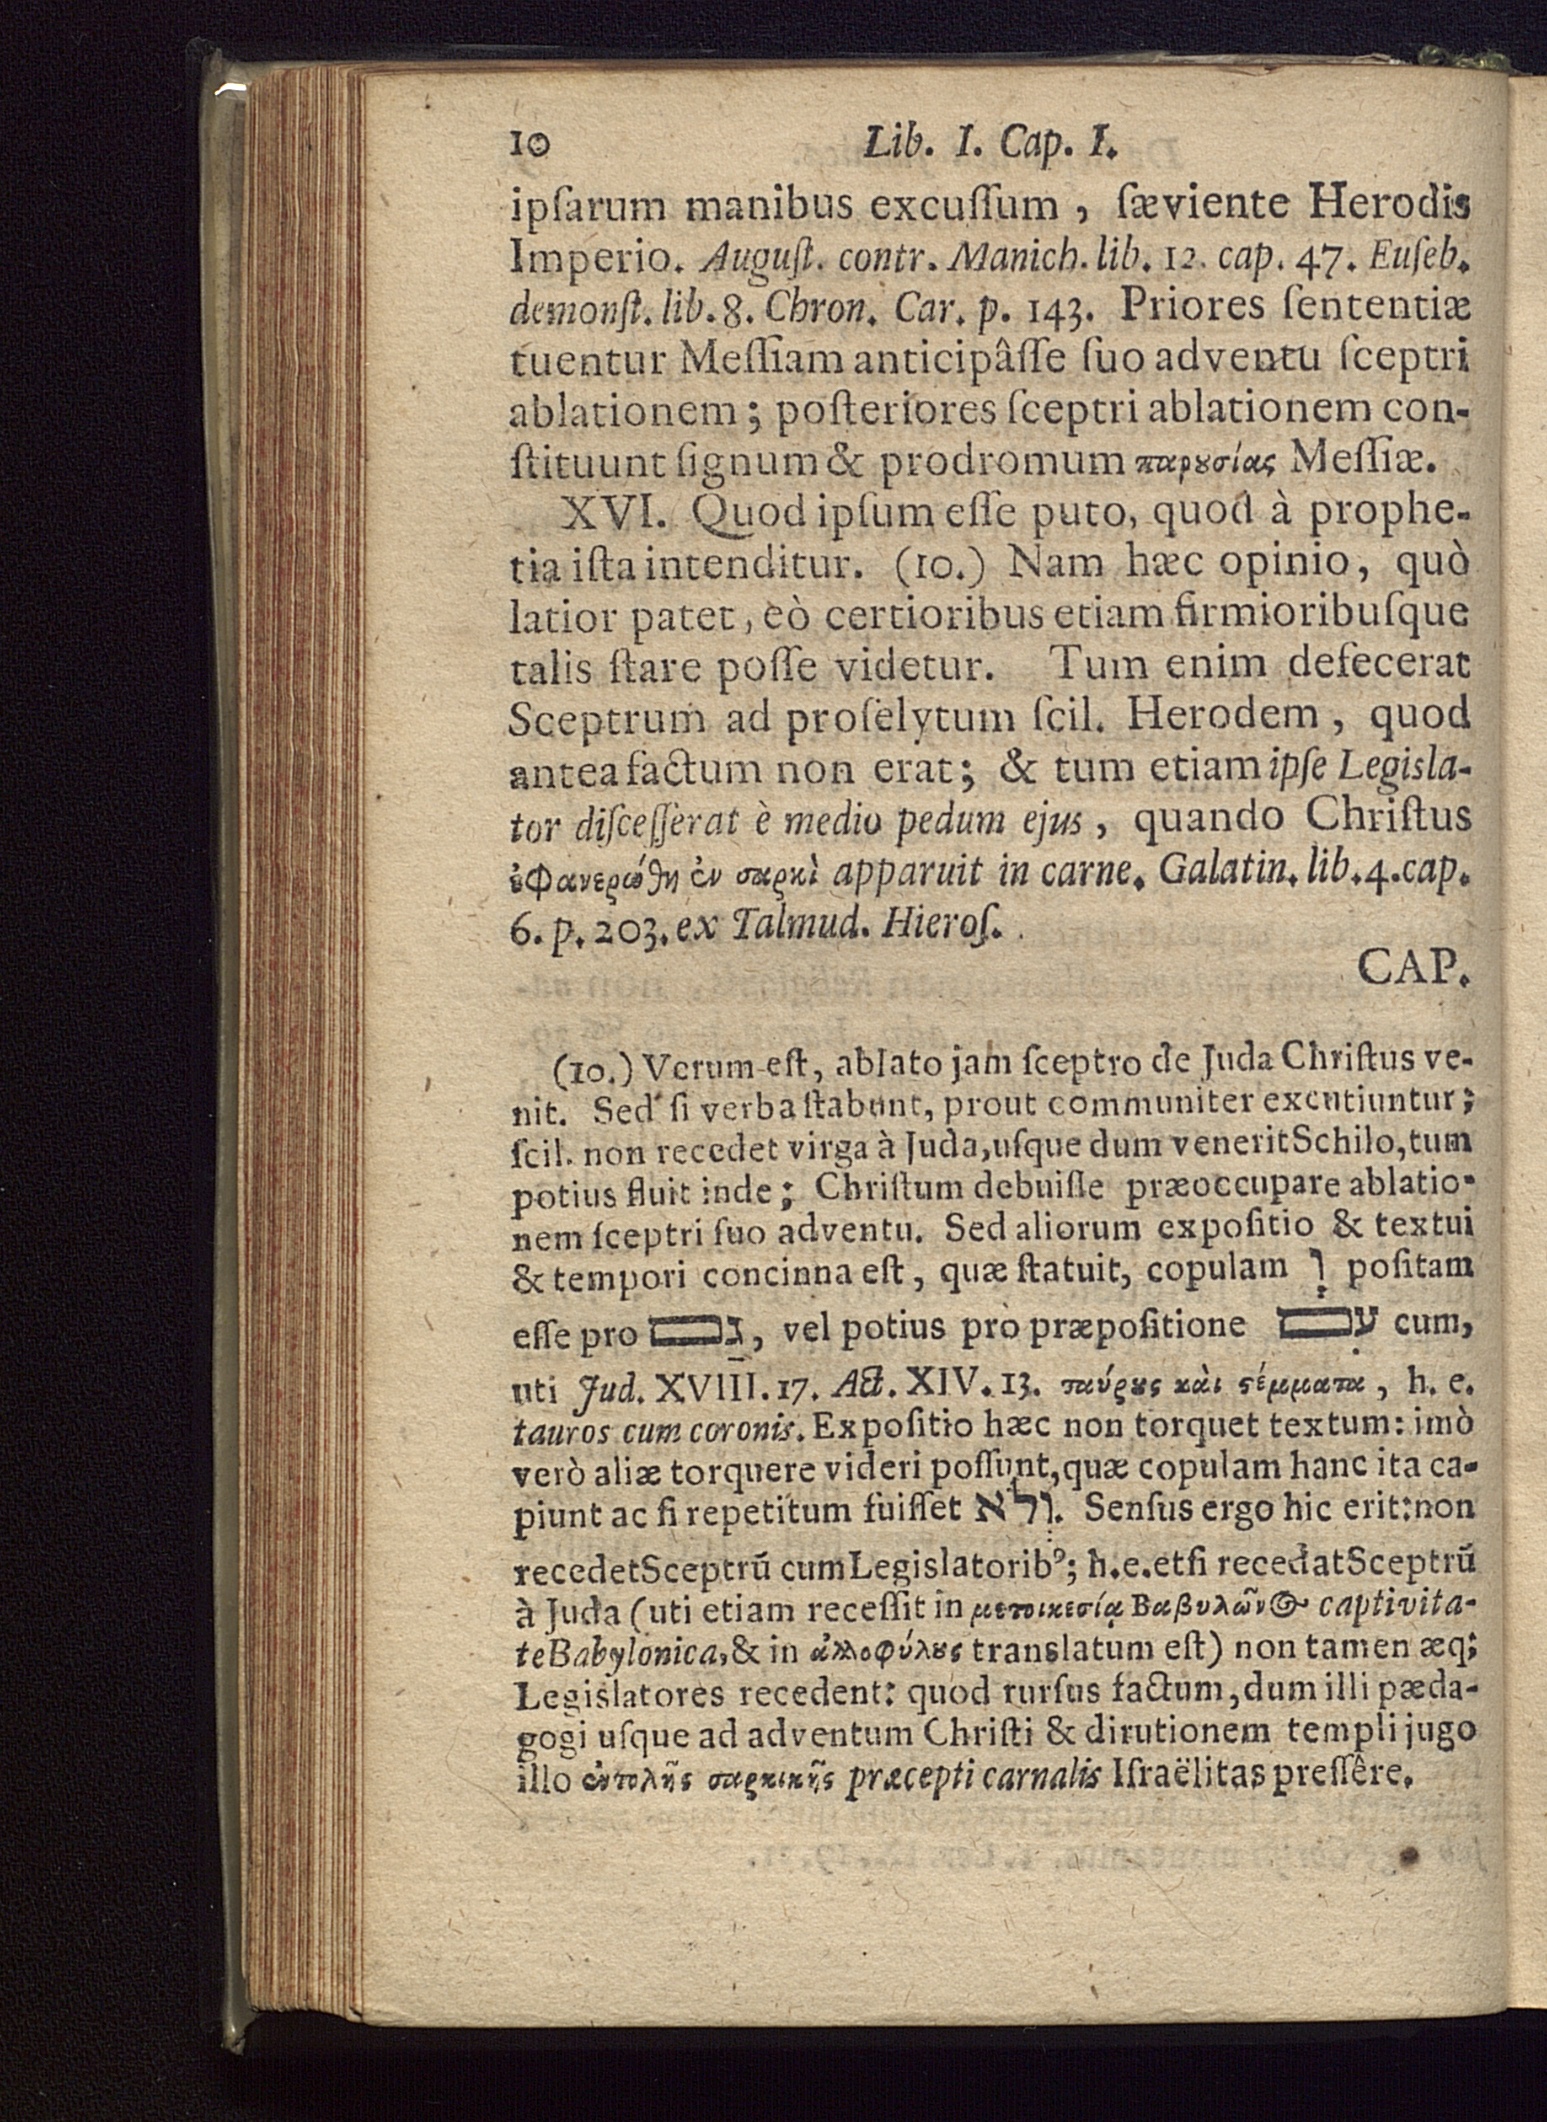 10 Lib. I. Cap. I.
ipſarum manibus excuſſum, ſæviente Herodis
Imperio. Auguſt. contr. Manich. lib. 12. cap. 47. Euſeb.
demonſt. lib. 8. Chron. Car. p. 143. Priores ſententiæ
tuentur Meſſiam anticipâſſe ſuo adventu ſceptri
ablationem; poſteriores ſceptri ablationem con-
ſtituunt ſignum & prodromum παρȣσίας Meſſiæ.
XVI. Quod ipſum eſſe puto, quod à prophe-
tia iſta intenditur. (10.) Nam hæc opinio, quò
latior patet, eò certioribus etiam firmioribuſque
talis ſtare poſſe videtur. Tum enim defecerat
Sceptrum ad proſelytum ſcil. Herodem, quod
antea factum non erat; & tum etiam ipſe Legisla-
tor diſceſſerat è medio pedum ejus, quando Chriſtus
ἐφανερώθη ἐν σαρκὶ apparuit in carne. Galatin. lib. 4. cap.
6. p. 203. ex Talmud. Hieroſ.
CAP.
(10.) Verum eſt, ablato jam ſceptro de Juda Chriſtus ve-
nit. Sed ſi verba ſtabunt, prout communiter excutiuntur;
ſcil. non recedet virga à Juda, uſque dum venerit Schilo, tum
potius fluit inde; Chriſtum debuiſſe præoccupare ablatio-
nem ſceptri ſuo adventu. Sed aliorum expoſitio & textui
& tempori concinna eſt, quæ ſtatuit, copulam וְ poſitam
eſſe pro גַּם, vel potius pro præpoſitione עִם cum,
uti Jud. XVIII. 17. Act. XIV. 13. ταύρȣς καὶ ϛέμματα, h. e.
tauros cum coronis. Expoſitio hæc non torquet textum: imò
verò aliæ torquere videri poſſunt, quæ copulam hanc ita ca-
piunt ac ſi repetitum fuiſſet וְלֹא. Senſus ergo hic erit: non
recedet Sceptrū cum Legislatoribꝰ; h. e. etſi recedat Sceptrū
à Juda (uti etiam receſſit in μετοικεσίᾳ Βαβυλῶνος captivita-
te Babylonica, & in ἀλλοφύλȣς translatum eſt) non tamen æq;
Legislatores recedent: quod rurſus factum, dum illi pæda-
gogi uſque ad adventum Chriſti & dirutionem templi jugo
illo ἐντολῆς σαρκικῆς præcepti carnalis Iſraëlitas preſſêre.